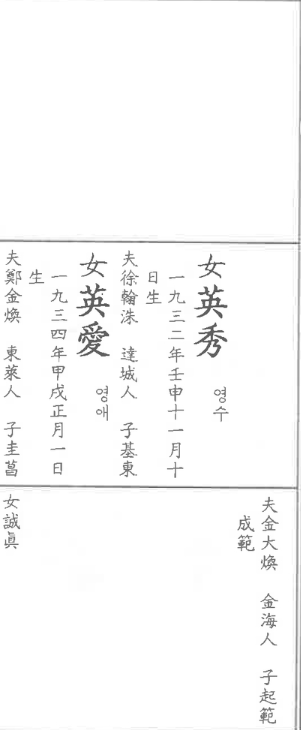 女英秀 영수
一九三二年壬申十一月十
日生
夫徐翰洙 達城人 子基東
女英愛 영애
一九三四年甲戌正月一日
生
夫鄭金煥 東萊人 子圭菖
夫金大煥 金海人 子起範
成範
女誠眞